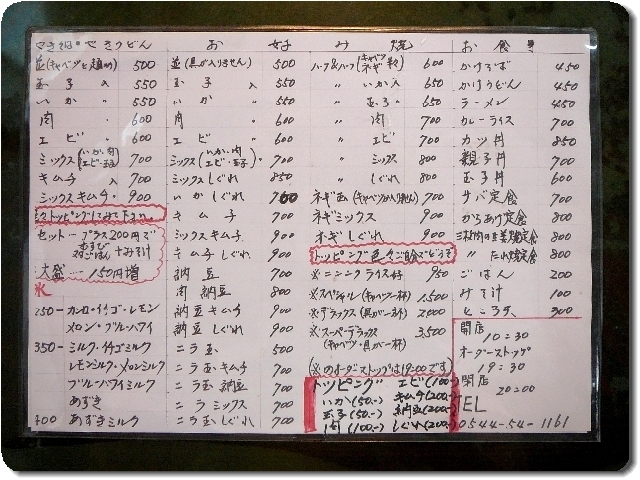 やきそば・やきうどん
並(キャベツと麺のみ) 500
玉子入 550
いか 〃 550
肉 〃 600
エビ 〃 600
ミックス(いか・肉 エビ・玉子) 700
キムチ入 700
ミックスキムチ 〃 900
セット… プラス200円で
むすび
又はごはん +みそ汁
大盛… 150円増
氷
250- カンロ・イチゴ・レモン
メロン・ブルーハワイ
350- ミルク・イチゴミルク
レモンミルク・メロンミルク
ブルーハワイミルク
あずき
400 あずきミルク
お好み焼
並(具が入りません) 500
玉子 〃 550
いか 〃 550
肉 〃 600
エビ 〃 600
ミックス(いか・肉 エビ・玉子) 〃 700
ミックスしぐれ 850
いかしぐれ 700
キムチ 700
ミックスキムチ 900
キムチしぐれ 900
納豆 700
肉納豆 800
納豆キムチ 900
納豆しぐれ 900
ニラ玉 500
ニラ玉キムチ 700
ニラ玉納豆 700
ニラミックス 700
ニラ玉しぐれ 700
ハーフ&ハーフ(キャベツ ネギ 半々) 600
〃 いか入 650
〃 玉子 〃 650
〃 肉 700
〃 エビ 700
〃 ミックス 800
〃 しぐれ 800
ネギのみ(キャベツが入りません) 700
ネギミックス 900
ネギしぐれ 900
トッピング色々ご自分でどうぞ
※ニンニクライス好 950
※スペシャル(キャベツ一杯) 1,500
※デラックス(具が一杯) 2,000
※スーパーデラックス 3,500
(キャベツ・具が一杯)
(※のオーダーストップは19:00です)
トッピング エビ(100-)
いか(50.-) キムチ(200-)
玉子(50.-) 納豆(200-)
肉(100.-) しぐれ(200-)
お食事
かけそば 450
かけうどん 450
ラーメン 450
カレーライス 700
カツ丼 850
親子丼 700
玉子丼 600
サバ定食 700
からあげ定食 800
三枚肉の生姜焼定食 800
〃 たれ焼定食 800
ごはん 200
みそ汁 100
ところ天 300
開店
10:30
オーダーストップ
19:30
閉店
20:00
TEL
0544-54-1161